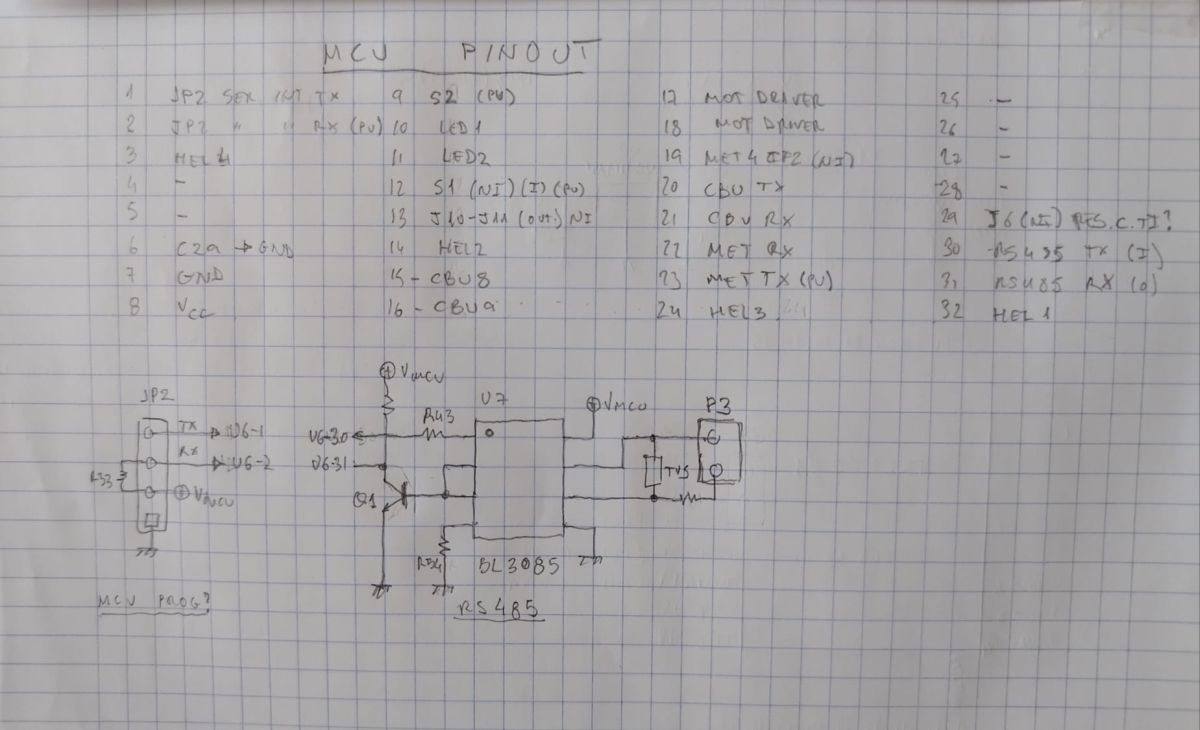 MCU PINOUT
1 JP2 SER INT TX 9 S2 (PU) 17 MOT DRIVER 25 -
2 JP2 " " RX (PU) 10 LED1 18 MOT DRIVER 26 -
3 HEL4 11 LED2 19 MET4 JP2 (NI) 27 -
4 - 12 S1 (NI) (I) (PU) 20 CBU TX 28 -
5 - 13 J10-J11 (OUT) NI 21 CBU RX 29 J6 (NI) RES. C. TI?
6 C29 → GND 14 HEL2 22 MET RX 30 RS485 TX (I)
7 GND 15 - CBU8 23 MET TX (PU) 31 RS485 RX (O)
8 Vcc 16 - CBU9 24 HEL3 32 HEL1
VMCU
JP2 U7 VMCU P3
TX U6-1 U6-30 R43
RX U6-2 U6-31
R33 TVS
VMCU Q1
R34 SL3085
MCU PROG? RS485